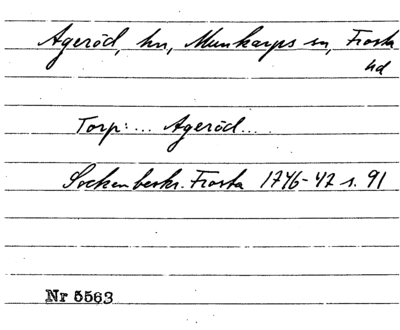 Ageröd, hn, Munkarps sn, Frosta
hd
Torp: ... Ageröd ...
Sockenbeskr. Frosta 1746-47 s. 91
Nr 5563